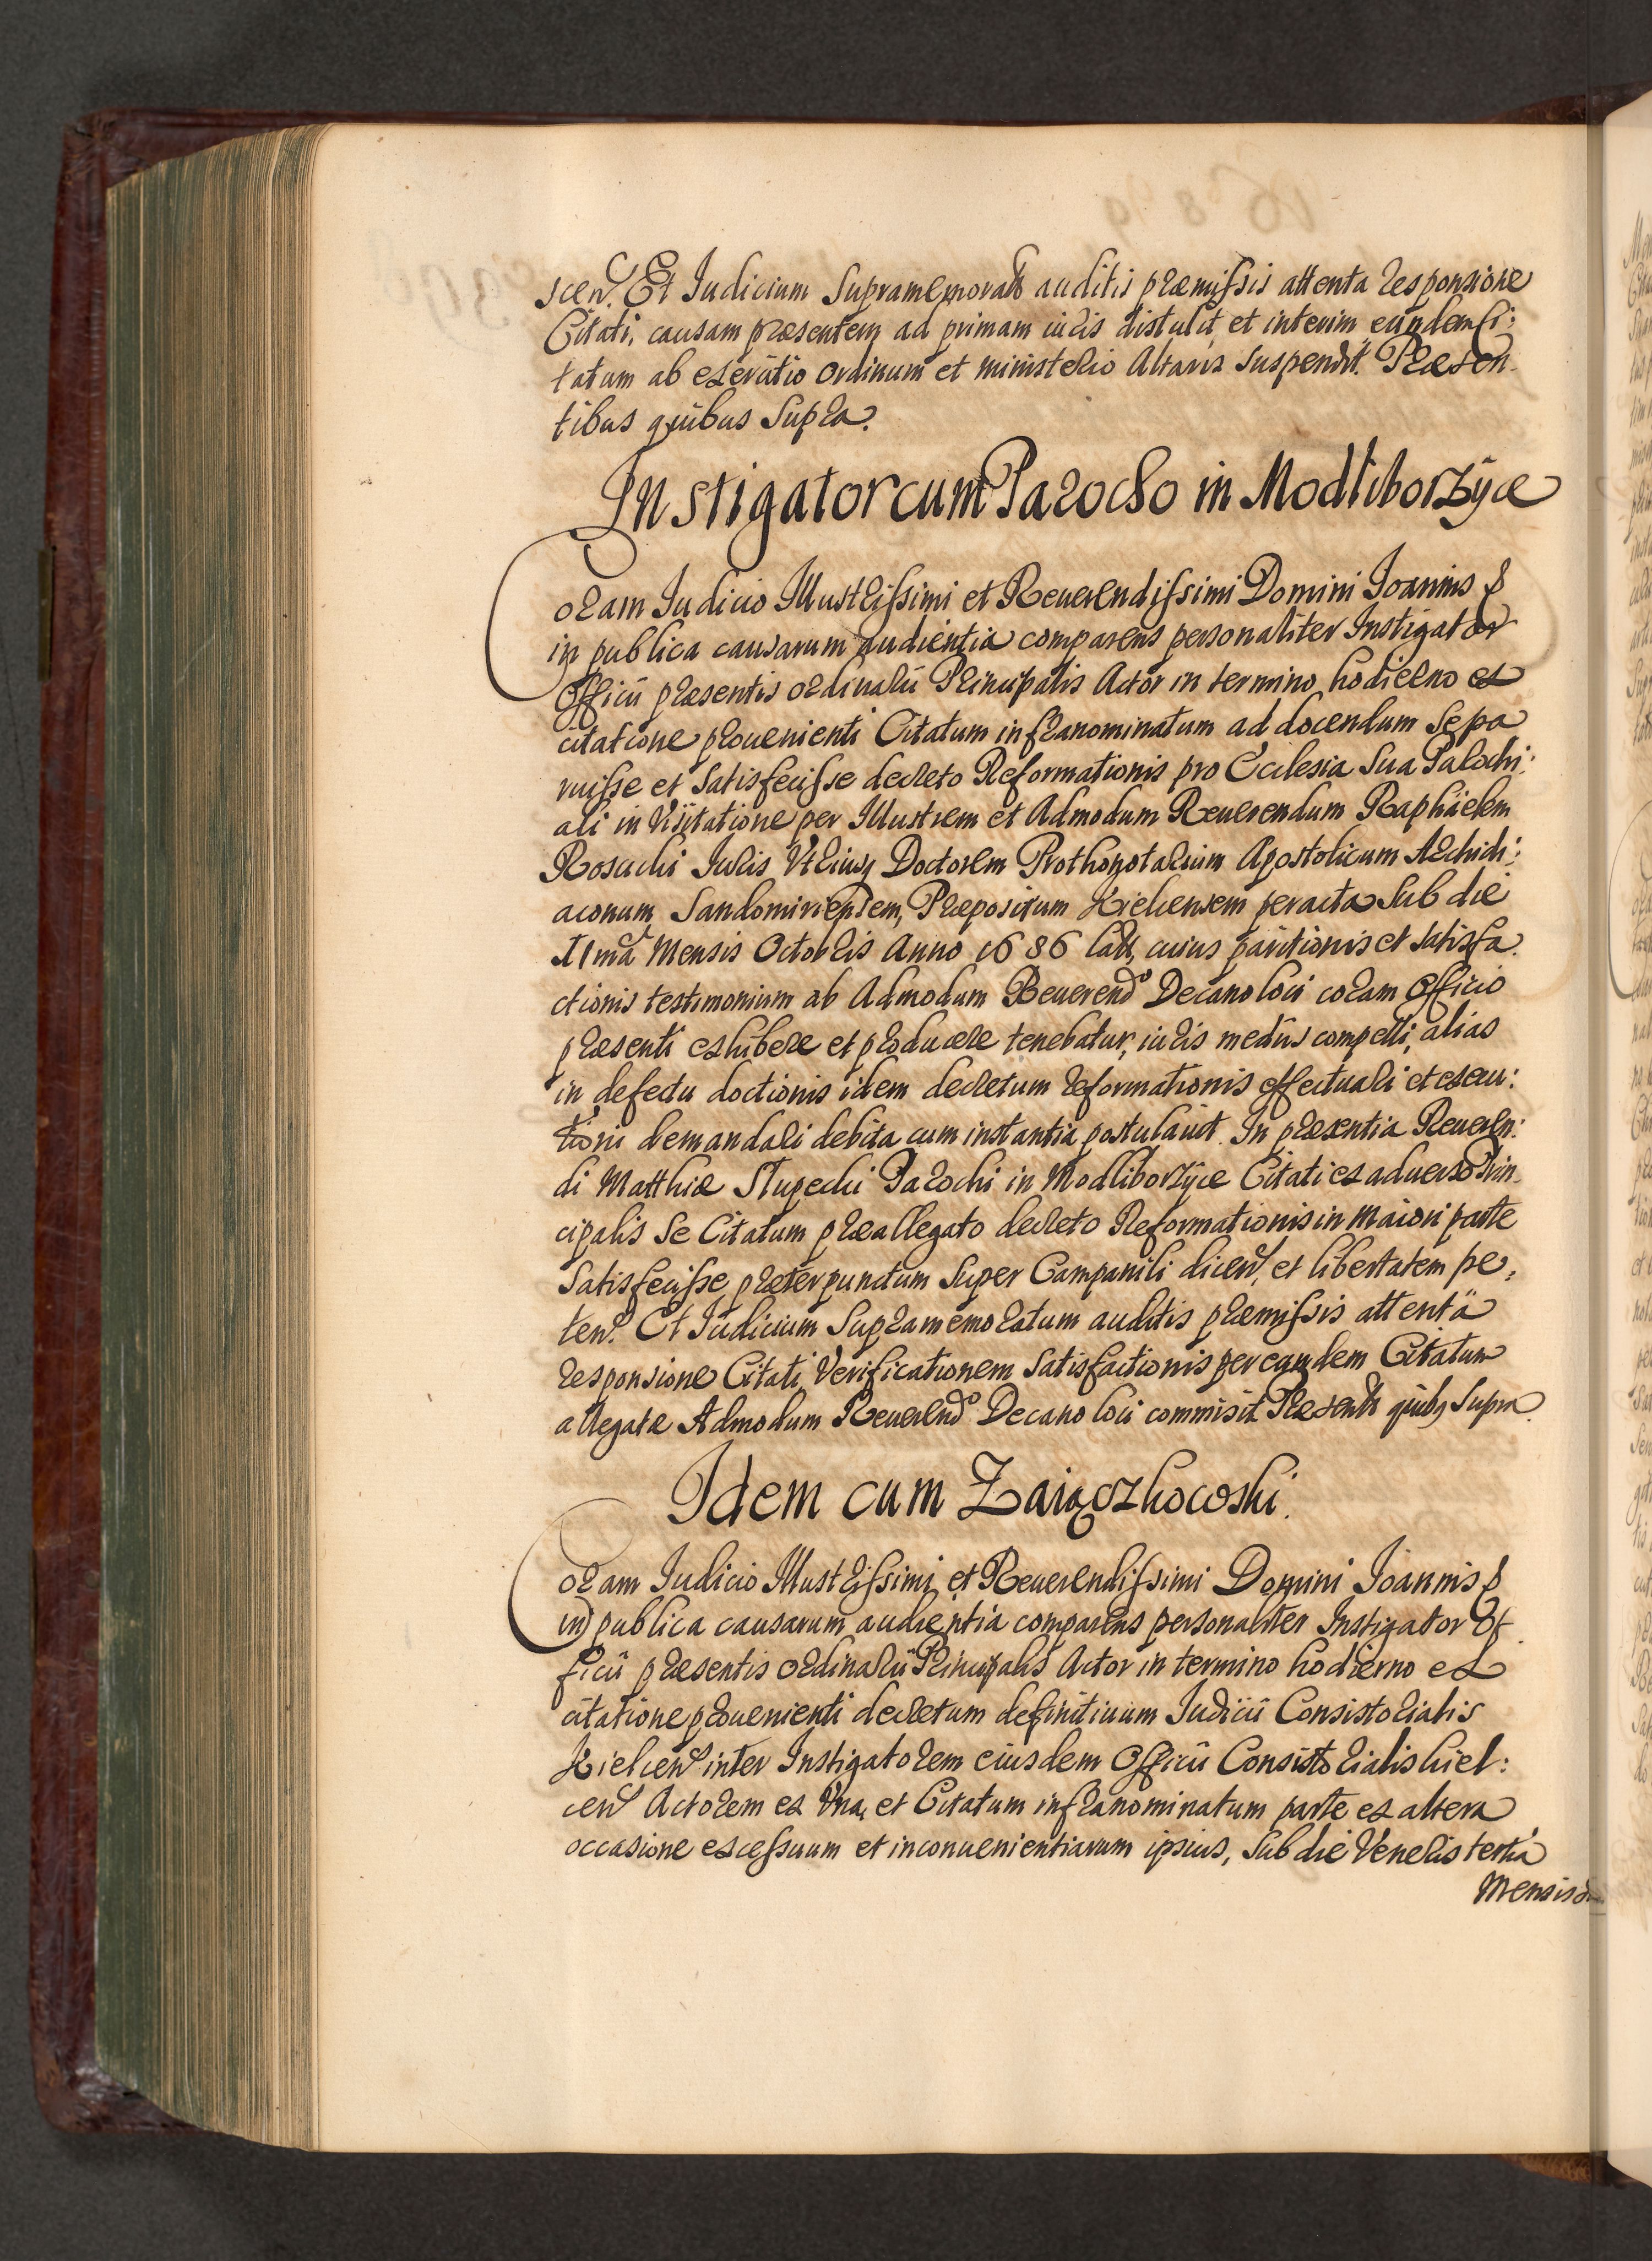 scen. Et Iudicium Supramemorat auditis præmissis attenta responsione
Citati, causam præsentem ad primam iuris distulit, et interim eundem Ci:
tatum ab exercitio ordinum et ministerio Altaris suspendit. Præsen-
tibus quibus Supra.
Instigator cum Parocho in Modliborzÿce
Coram Iudicio Illustrissimi et Reuerendissimi Domini Ioannis
in publica causarum audientia comparens personaliter Instigator
Officii præsentis ordinarii Principalis Actor in termino hodierno ex
citatione prouenienti Citatum infranominatum ad docendum se pa
ruisse et satisfecisse decreto Reformationis pro Ecclesia Sua Parochi:
ali in Visitatione per Illustrem et Admodum Reuerendum Raphäelem
Rosachi Iuris Vtriusq Doctorem Prothonotarium Apostolicum Archidi:
aconum Sandomiriensem, Præpositum Kielcensem peracta Sub die
XImâ Mensis Octobris Anno 1686 lato, cuius paritionis et satisfa
ctionis testimonium ab Admodum Reuerendo Decano loci coram Officio
præsenti exhibere et producere tenebatur, iuris mediis compelli, alias
in defectu doctionis idem decretum reformationis effectuari et execu:
tioni demandari debita cum instantia postulauit. In præsentia Reueren:
di Matthiæ Słupecki Parochi in Modliborzÿce Citati ex aduerso Prin-
cipalis se Citatum præallegato decreto Reformationis in maiori parte
satisfecisse præter punctum super Campanili dicen, et libertatem pe,
ten. Et Iudicium Supramemoratum auditis præmissis attentâ
responsione Citati Verificationem satisfactionis per eundem Citatum
allegatæ Admodum Reuerendo Decano loci commisit Præsent quibq Supra.
Idem cum Zaiączkowski.
Coram Iudicio Illustrissimi et Reuerendissimi Domini Ioannis
in publica causarum audientia comparens personaliter Instigator Of
ficii præsentis ordinarii Principalis Actor in termino hodierno ex
citatione prouenienti decretum definitiuum Iudicii Consistorialis
Kielcen inter Instigatorem eiusdem Officii Consistorialis Kiel:
cen Actorem ex Vna, et Citatum infranominatum parte ex altera
occasione excessuum et inconuenientiarum ipsius, sub die Veneris tertia
Mensis